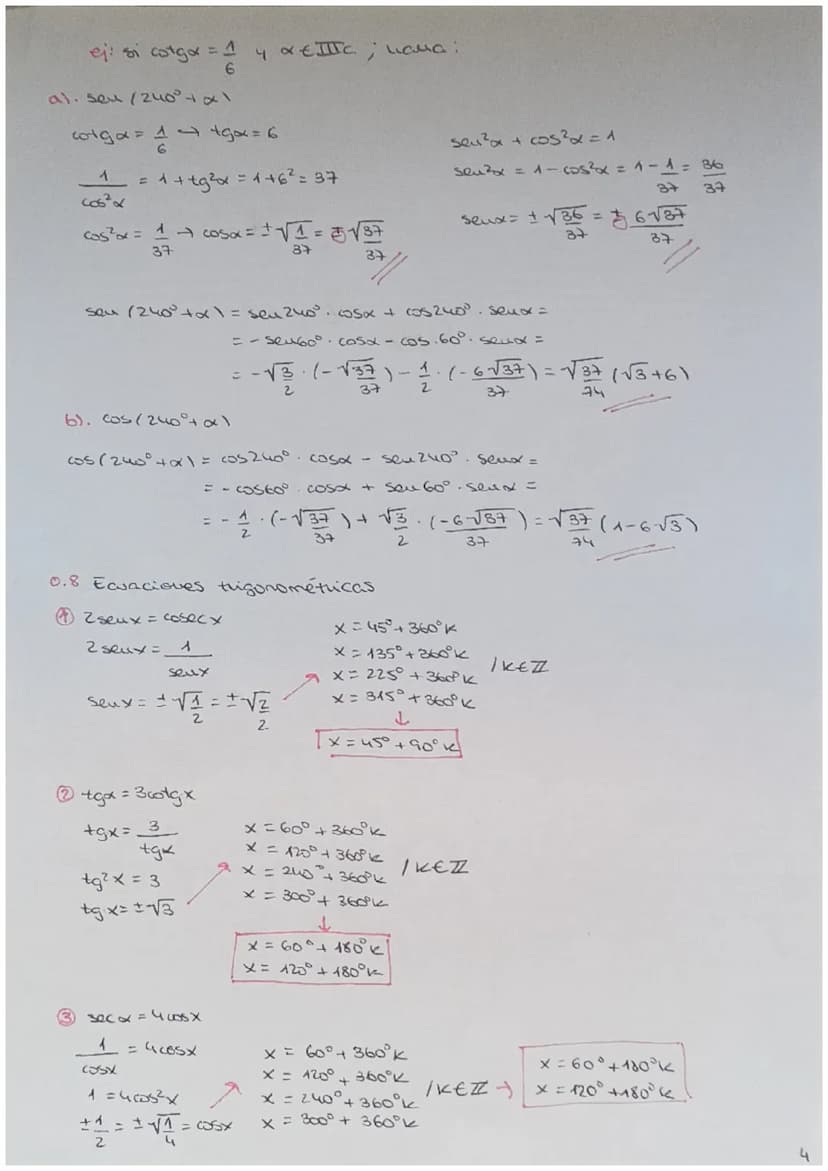 ej: si cotgα = 1/6 y α ∈ IIIc ; halla :
a). sen (240° + α)
cotgα = 1/6 → tgα = 6
1/cos²α = 1 + tg²α = 1 + 6² = 37
cos²α = 1/37 → cosα = ±√1/37 = ±√37/37
sen²α + cos²α = 1
sen²α = 1 - cos²α = 1 - 1/37 = 36/37
senα = ±√36/37 = ± 6√37/37
sen (240° + α) = sen240° · cosα + cos240° · senα =
= - sen60° · cosα - cos 60° · senα =
= -√3/2 · (-√37/37) - 1/2 · (-6√37/37) = √37/74 (√3 + 6)
b). cos (240° + α)
cos (240° + α) = cos240° · cosα - sen240° · senα =
= - cos60° · cosα + sen60° · senα =
= - 1/2 · (-√37/37) + √3/2 · (-6√37/37) = √37/74 (1 - 6√3)
0.8 Ecuaciones trigonométricas
① 2senx = cosecx
2senx = 1/senx
senx = ±√1/2 = ±√2/2
x = 45° + 360°K
x = 135° + 360°K
x = 225° + 360°K
x = 315° + 360°K
/ K ∈ ℤ
x = 45° + 90°K
② tgα = 3cotgx
tgx = 3/tgx
tg²x = 3
tgx = ±√3
x = 60° + 360°K
x = 120° + 360°K
x = 240° + 360°K
x = 300° + 360°K
/ K ∈ ℤ
x = 60° + 180°K
x = 120° + 180°K
③ secα = 4cosx
1/cosx = 4cosx
1 = 4cos²x
±1/2 = ±√1/4 = cosx
x = 60° + 360°K
x = 120° + 360°K
x = 240° + 360°K
x = 300° + 360°K
/ K ∈ ℤ →
x = 60° + 180°K
x = 120° + 180°K
4